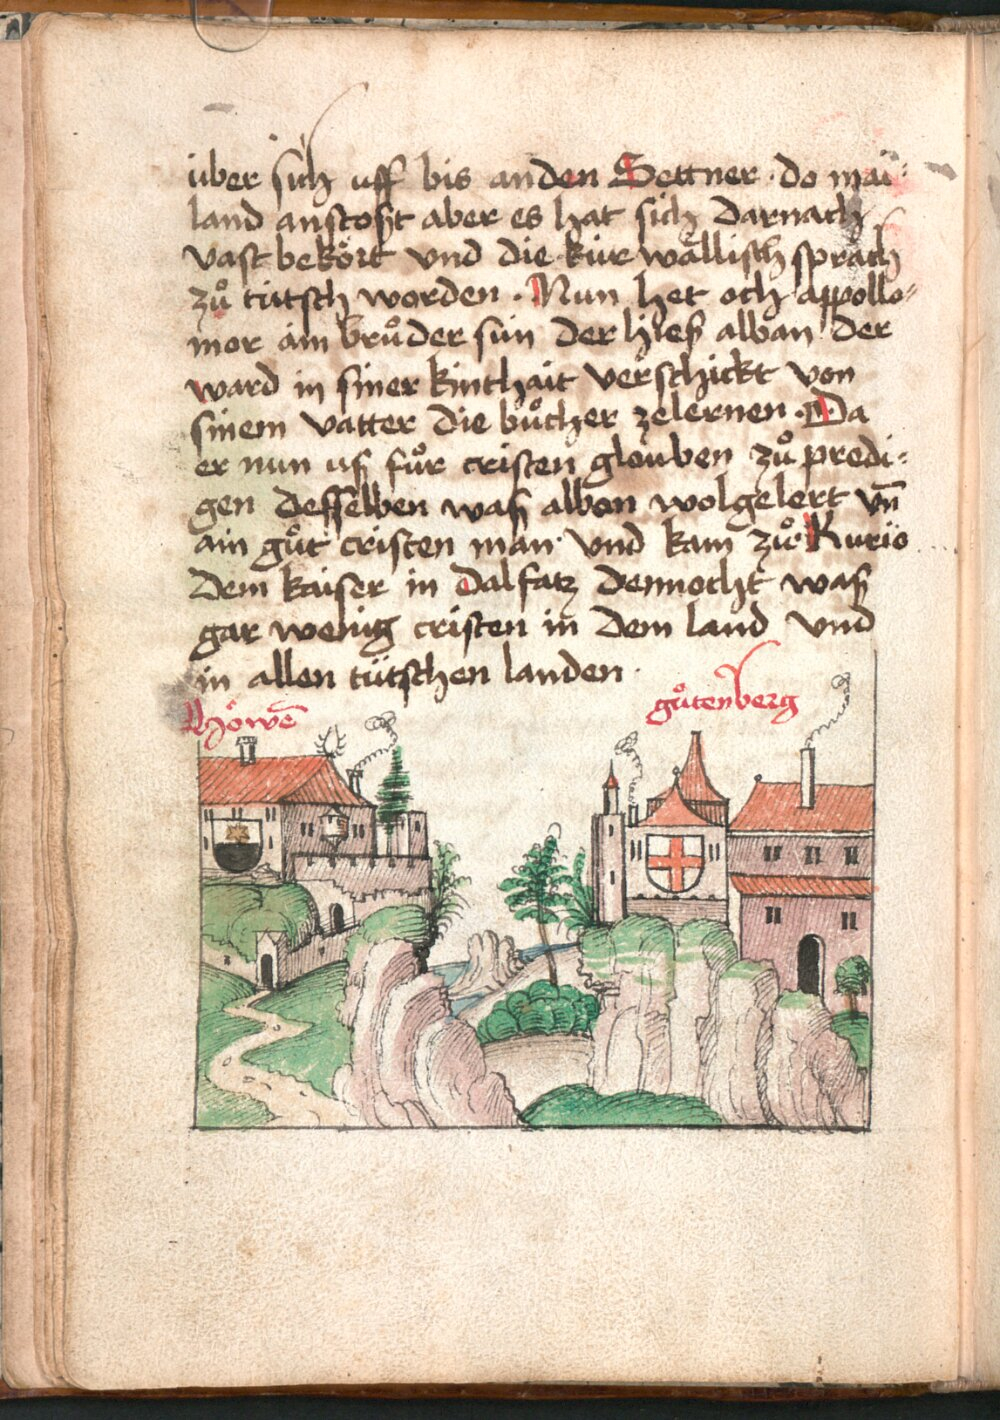 über sich uff bis an den Settner · do mai-
land anstoßt aber es hat sich darnach
vast bekört und die kur wällisch sprach
zů tütsch worden · Nun het och appollo-
mor ain brůder sun der hieß alban der
ward in siner kinthait verschickt von
sinem vatter die bůcher zelernen · Da
er nun uß fůr cristen glouben zů predi-
gen desselben waß alban wolgelert vn̄
ain gůt cristen man · und kam zů Kurio
dem kaiser in dalfatz dennocht waß
gar wenig cristen in dem land und
in allen tütschen landen ·
gůtenberg